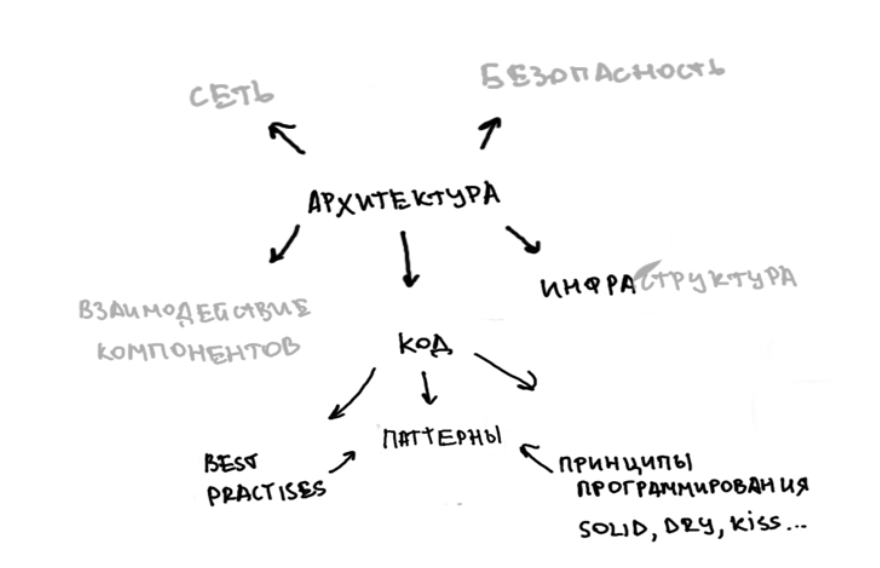 СЕТЬ
БЕЗОПАСНОСТЬ
АРХИТЕКТУРА
ВЗАИМОДЕЙСТВИЕ
КОМПОНЕНТОВ
ИНФРАСТРУКТУРА
КОД
ПАТТЕРНЫ
BEST
PRACTISES
ПРИНЦИПЫ
ПРОГРАММИРОВАНИЯ
SOLID, DRY, KISS...